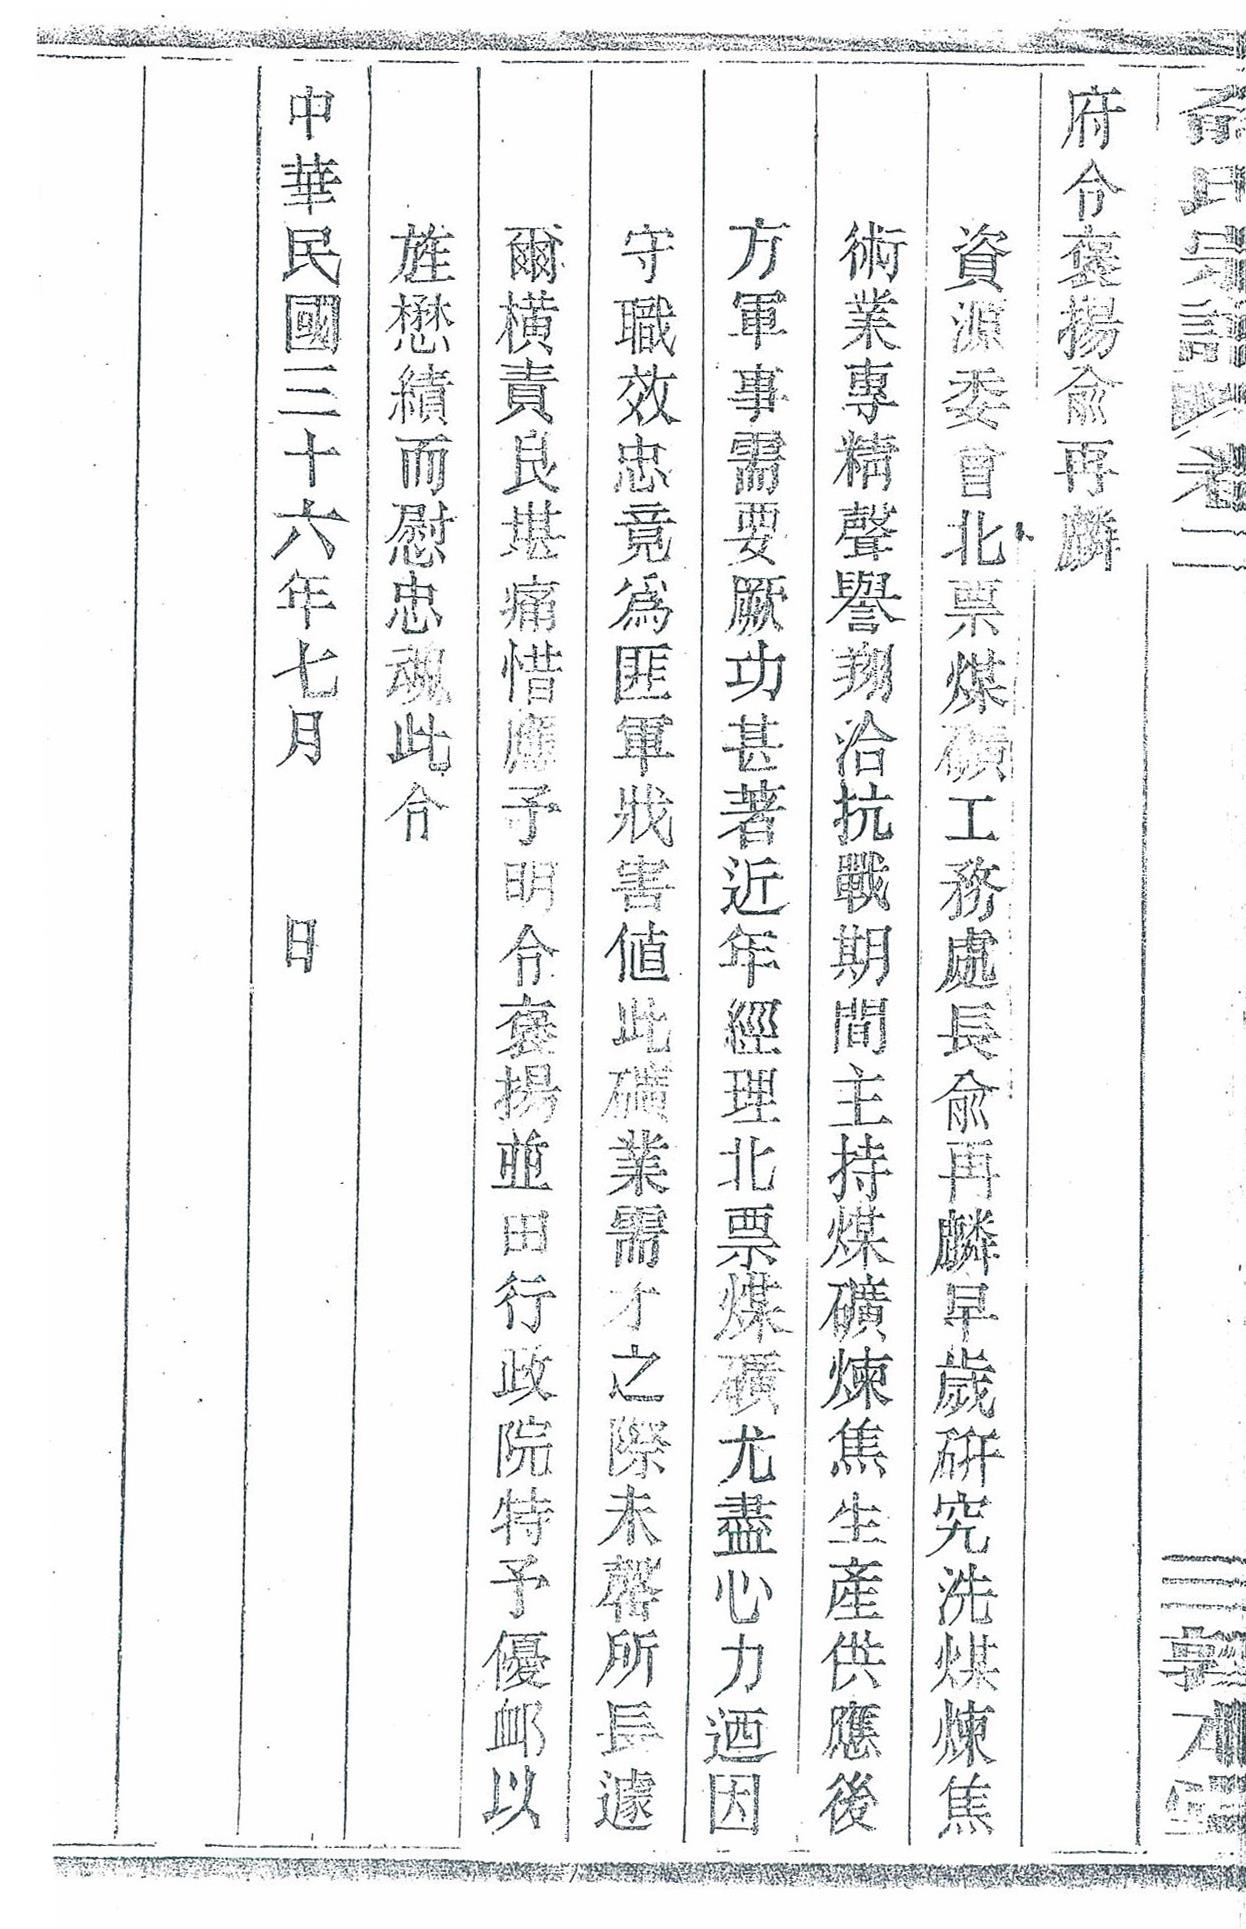 俞氏宗譜 卷二 敦本堂
府令褒揚俞再麟
資源委會北票煤礦工務處長俞再麟早歲硏究洗煤煉焦
術業專精聲譽翔洽抗戰期間主持煤礦煉焦生產供應後
方軍事需要厥功甚著近年經理北票煤礦尤盡心力迺因
守職效忠竟爲匪軍戕害値此礦業需才之際未罄所長遽
爾橫責良堪痛惜應予明令褒揚並由行政院特予優卹以
旌懋績而慰忠魂此令
中華民國三十六年七月 日